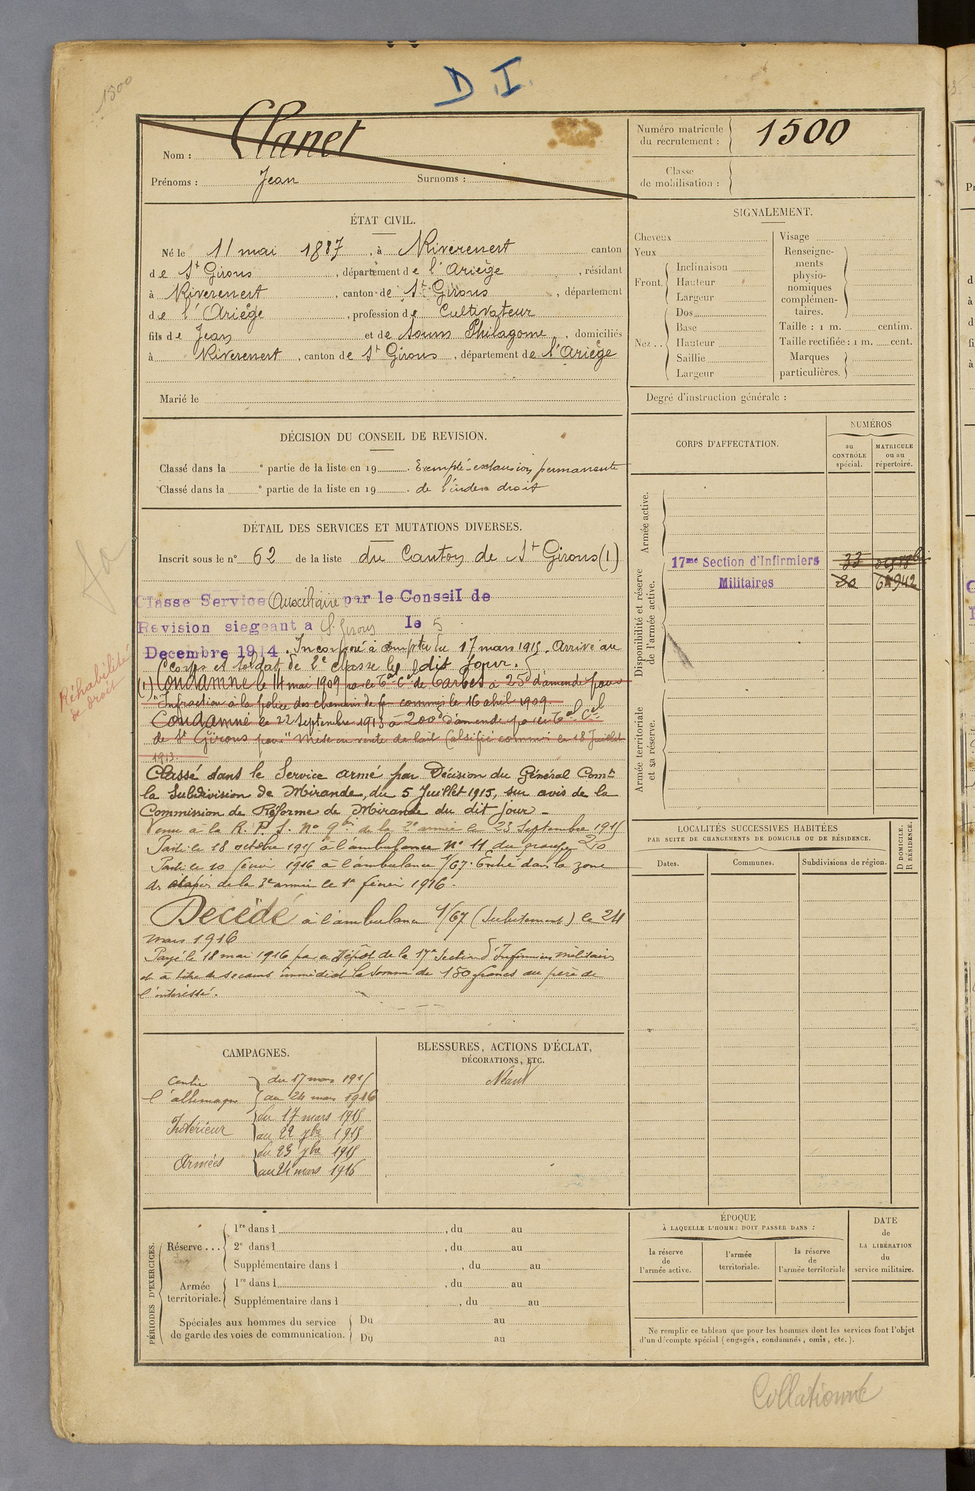 1500
D.I.
Nom : Clanet
Prénoms : Jean Surnoms :
Numéro matricule du recrutement : 1500
Classe de mobilisation :
ÉTAT CIVIL.
Né le 11 mai 1887, à Riverenert canton
de St Girons, département de l'Ariège, résidant
à Riverenert, canton de St Girons, département
de l'Ariège, profession de Cultivateur
fils de Jean et de Soum Philagone, domiciliés
à Riverenert, canton de St Girons, département de l'Ariège
Marié le
SIGNALEMENT.
Cheveux
Yeux
Front Inclinaison
Hauteur
Largeur
Nez Dos
Base
Hauteur
Saillie
Largeur
Visage
Renseigne-
ments
physio-
nomiques
complémen-
taires.
Taille : 1 m. centim.
Taille rectifiée : 1 m. cent.
Marques
particulières.
Degré d'instruction générale :
DÉCISION DU CONSEIL DE REVISION.
Classé dans la e partie de la liste en 19 . Exempté extension permanente
Classé dans la e partie de la liste en 19 . de l'index droit
DÉTAIL DES SERVICES ET MUTATIONS DIVERSES.
Inscrit sous le n° 62 de la liste du Canton de St Girons (1)
Classe Service Auxiliaire par le Conseil de
Revision siegeant a St Girons le 5
Decembre 1914. Incorporé à compter du 17 mars 1915. Arrivé au
corps et soldat de 2e classe le dit jour.
(1) Condamné le 14 mai 1909 par le Tal Cel de Tarbes à 25f d'amende pour
Infraction à la police des chemins de fer commise le 16 avril 1909.
Condamné le 22 Septembre 1913 à 200f d'amende par le Tal Cel
de St Girons pour "Mise en vente de lait falsifié commis le 18 Juillet
1913.
Réhabilité
de droit
Classé dans le Service armé par Décision du Général Comt
la Subdivision de Mirande, du 5 Juillet 1915, sur avis de la
Commission de Réforme de Mirande du dit jour.
Venu à la R. P. S. N° 9 bis de la 2e armée le 23 Septembre 1915
Parti le 18 octobre 1915 à l'ambulance N° 11 du groupe
Parti le 10 février 1916 à l'ambulance 1/67. Entré dans la zone
des étapes de la 2e armée le 1er février 1916.
Décédé à l'ambulance 1/67 (subitement) le 24
mars 1916
Payé le 18 mai 1916 par le Dépôt de la 17e Section d'Infirmiers militaires
et à titre de secours immédiat la somme de 150 francs au père de
l'intéressé.
CORPS D'AFFECTATION.
NUMÉROS
au CONTRÔLE spécial.
MATRICULE ou au répertoire.
Armée active.
Disponibilité et réserve de l'armée active.
17me Section d'Infirmiers
Militaires
Armée territoriale et sa réserve.
LOCALITÉS SUCCESSIVES HABITÉES
PAR SUITE DE CHANGEMENTS DE DOMICILE OU DE RÉSIDENCE.
Dates. Communes. Subdivisions de région.
D DOMICILE.
R RÉSIDENCE.
CAMPAGNES.
Contre l'allemagne du 17 mars 1915
au 24 mars 1916
Intérieur du 17 mars 1915
au 22 7bre 1915
Armées du 23 7bre 1915
au 24 mars 1916
BLESSURES, ACTIONS D'ÉCLAT,
DÉCORATIONS, ETC.
Néant
PÉRIODES D'EXERCICES.
Réserve... 1re dans l , du au
2e dans l , du au
Supplémentaire dans l , du au
Armée territoriale. 1re dans l , du au
Supplémentaire dans l , du au
Spéciales aux hommes du service
de garde des voies de communication.
Du au
Du au
ÉPOQUE
À LAQUELLE L'HOMME DOIT PASSER DANS :
la réserve de l'armée active.
l'armée territoriale.
la réserve de l'armée territoriale
DATE de LA LIBÉRATION du service militaire.
Ne remplir ce tableau que pour les hommes dont les services font l'objet
d'un décompte spécial (engagés, condamnés, omis, etc.).
Collationné